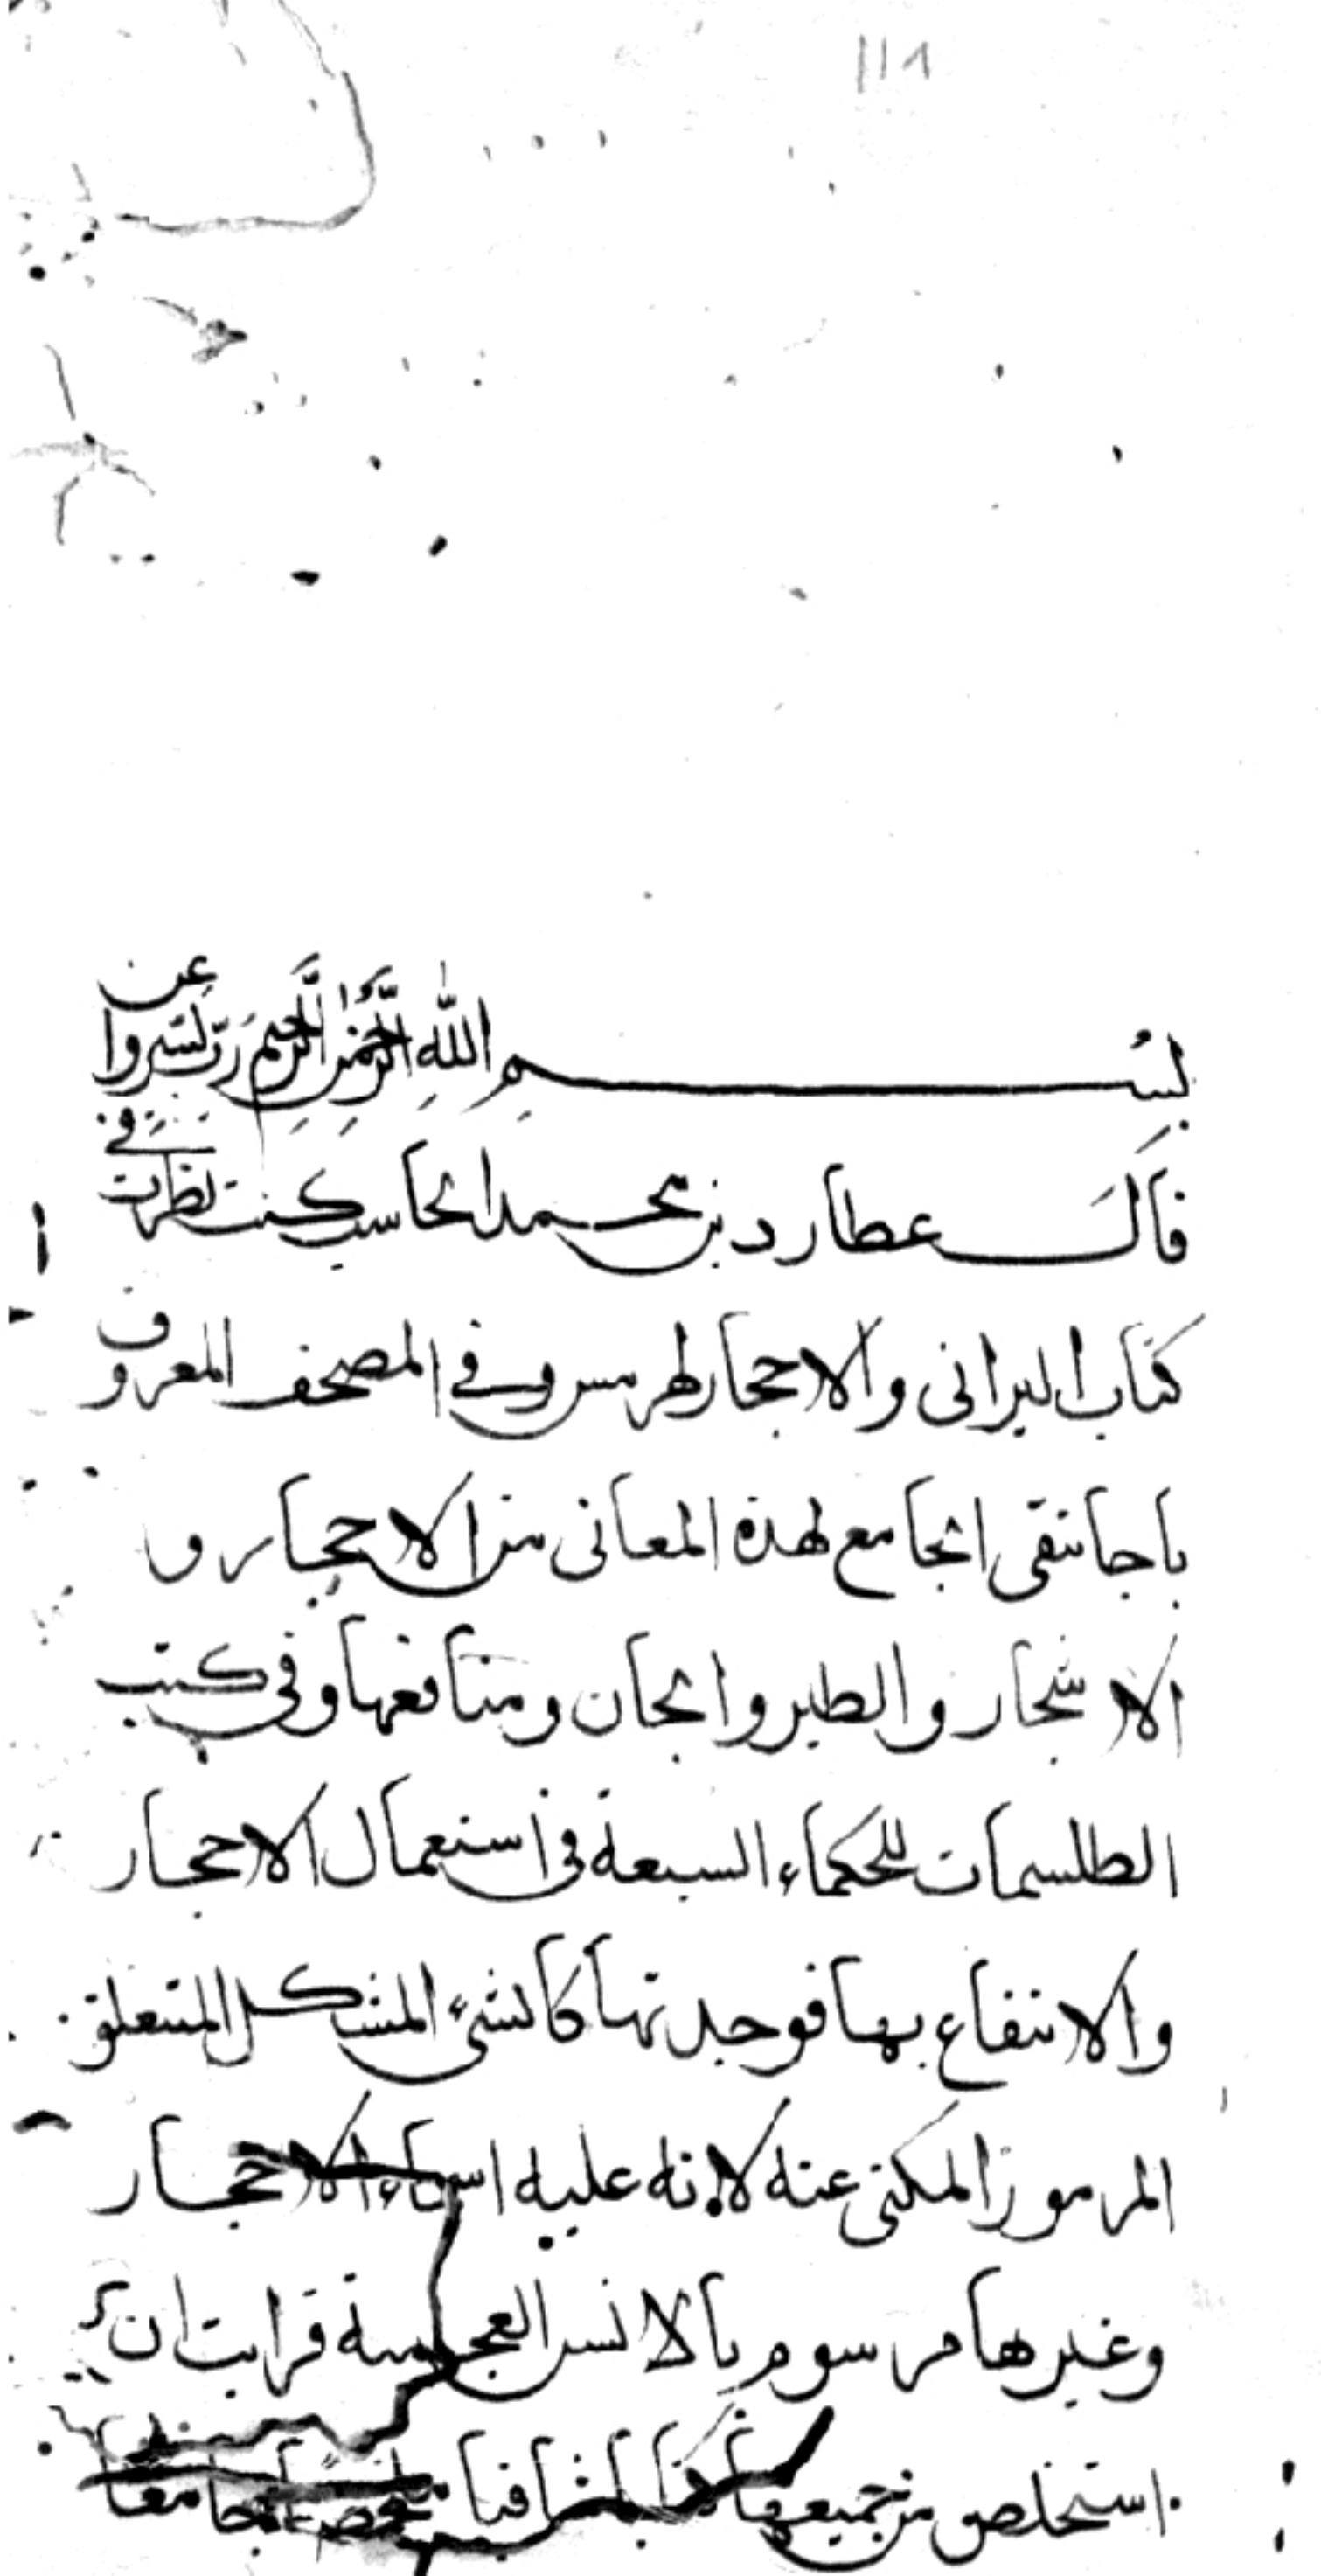 ١١٨
بسم الله الرحمن الرحيم رب يسر واعن
قال عطارد بن محمد الحاسب كنت نظرت في
كتاب البرانى والاحجار لهرمس وفي المصحف المعروف
باجانتقى الجامع لهذه المعانى من الاحجار و
الاشجار والطير والجان ومنافعها وفى كتب
الطلسمات للحكماء السبعة فى استعمال الاحجار
والانتفاع بها فوجدتها كالشىء المشكل المتعلق
المرموز المكنى عنه لانه عليه اسماء الاحجار
وغيرها مرسوم بالالسن العجمية فرايت ان
استخلص من جميعها كتابا ملخصا جامعا